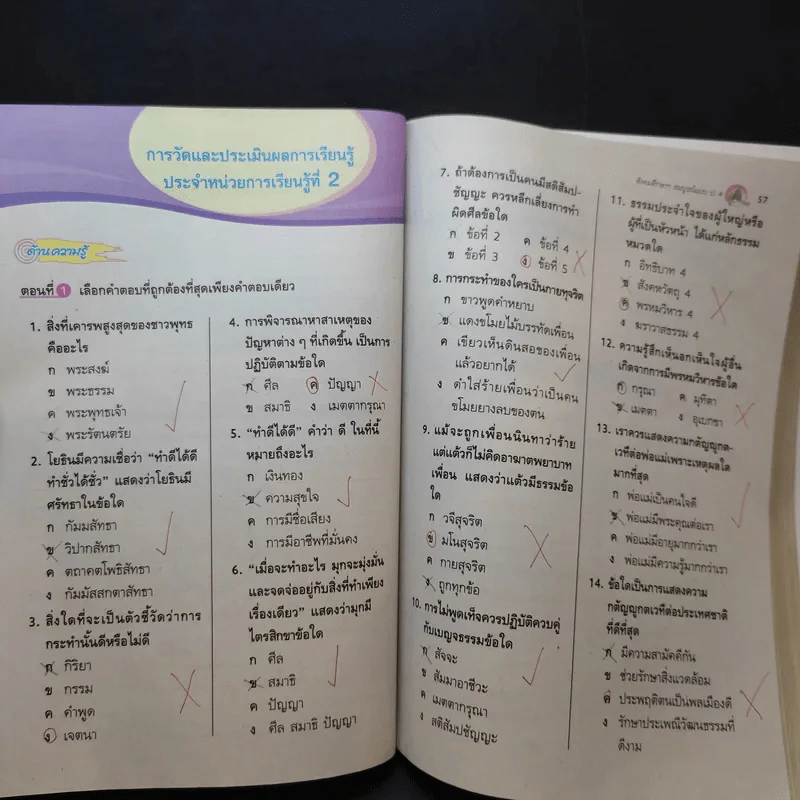 การวัดและประเมินผลการเรียนรู้
ประจำหน่วยการเรียนรู้ที่ 2
ด้านความรู้
ตอนที่ 1 เลือกคำตอบที่ถูกต้องที่สุดเพียงคำตอบเดียว
1. สิ่งที่เคารพสูงสุดของชาวพุทธ
คืออะไร
ก พระสงฆ์
ข พระธรรม
ค พระพุทธเจ้า
ง พระรัตนตรัย
2. โยธินมีความเชื่อว่า “ทำดีได้ดี
ทำชั่วได้ชั่ว” แสดงว่าโยธินมี
ศรัทธาในข้อใด
ก กัมมสัทธา
ข วิปากสัทธา
ค ตถาคตโพธิสัทธา
ง กัมมัสสกตาสัทธา
3. สิ่งใดที่จะเป็นตัวชี้วัดว่าการ
กระทำนั้นดีหรือไม่ดี
ก กิริยา
ข กรรม
ค คำพูด
ง เจตนา
4. การพิจารณาหาสาเหตุของ
ปัญหาต่าง ๆ ที่เกิดขึ้น เป็นการ
ปฏิบัติตามข้อใด
ก ศีล ค ปัญญา
ข สมาธิ ง เมตตากรุณา
5. “ทำดีได้ดี” คำว่า ดี ในที่นี้
หมายถึงอะไร
ก เงินทอง
ข ความสุขใจ
ค การมีชื่อเสียง
ง การมีอาชีพที่มั่นคง
6. “เมื่อจะทำอะไร มุกจะมุ่งมั่น
และจดจ่ออยู่กับสิ่งที่ทำเพียง
เรื่องเดียว” แสดงว่ามุกมี
ไตรสิกขาข้อใด
ก ศีล
ข สมาธิ
ค ปัญญา
ง ศีล สมาธิ ปัญญา
57
7. ถ้าต้องการเป็นคนมีสติสัมป-
ชัญญะ ควรหลีกเลี่ยงการทำ
ผิดศีลข้อใด
ก ข้อที่ 2 ค ข้อที่ 4
ข ข้อที่ 3 ง ข้อที่ 5
8. การกระทำของใครเป็นกายทุจริต
ก ขาวพูดคำหยาบ
ข แดงขโมยไม้บรรทัดเพื่อน
ค เขียวเห็นดินสอของเพื่อน
แล้วอยากได้
ง ดำใส่ร้ายเพื่อนว่าเป็นคน
ขโมยยางลบของตน
9. แม้จะถูกเพื่อนนินทาว่าร้าย
แต่แต้วก็ไม่คิดอาฆาตพยาบาท
เพื่อน แสดงว่าแต้วมีธรรมข้อ
ใด
ก วจีสุจริต
ข มโนสุจริต
ค กายสุจริต
ง ถูกทุกข้อ
10. การไม่พูดเท็จควรปฏิบัติควบคู่
กับเบญจธรรมข้อใด
ก สัจจะ
ข สัมมาอาชีวะ
ค เมตตากรุณา
ง สติสัมปชัญญะ
11. ธรรมประจำใจของผู้ใหญ่หรือ
ผู้ที่เป็นหัวหน้า ได้แก่หลักธรรม
หมวดใด
ก อิทธิบาท 4
ข สังคหวัตถุ 4
ค พรหมวิหาร 4
ง ฆราวาสธรรม 4
12. ความรู้สึกเห็นอกเห็นใจผู้อื่น
เกิดจากการมีพรหมวิหารข้อใด
ก กรุณา ค มุทิตา
ข เมตตา ง อุเบกขา
13. เราควรแสดงความกตัญญูกต-
เวทีต่อพ่อแม่เพราะเหตุผลใด
มากที่สุด
ก พ่อแม่เป็นคนใจดี
ข พ่อแม่มีพระคุณต่อเรา
ค พ่อแม่มีอายุมากกว่าเรา
ง พ่อแม่มีความรู้มากกว่าเรา
14. ข้อใดเป็นการแสดงความ
กตัญญูกตเวทีต่อประเทศชาติ
ที่ดีที่สุด
ก มีความสามัคคีกัน
ข ช่วยรักษาสิ่งแวดล้อม
ค ประพฤติตนเป็นพลเมืองดี
ง รักษาประเพณีวัฒนธรรมที่
ดีงาม